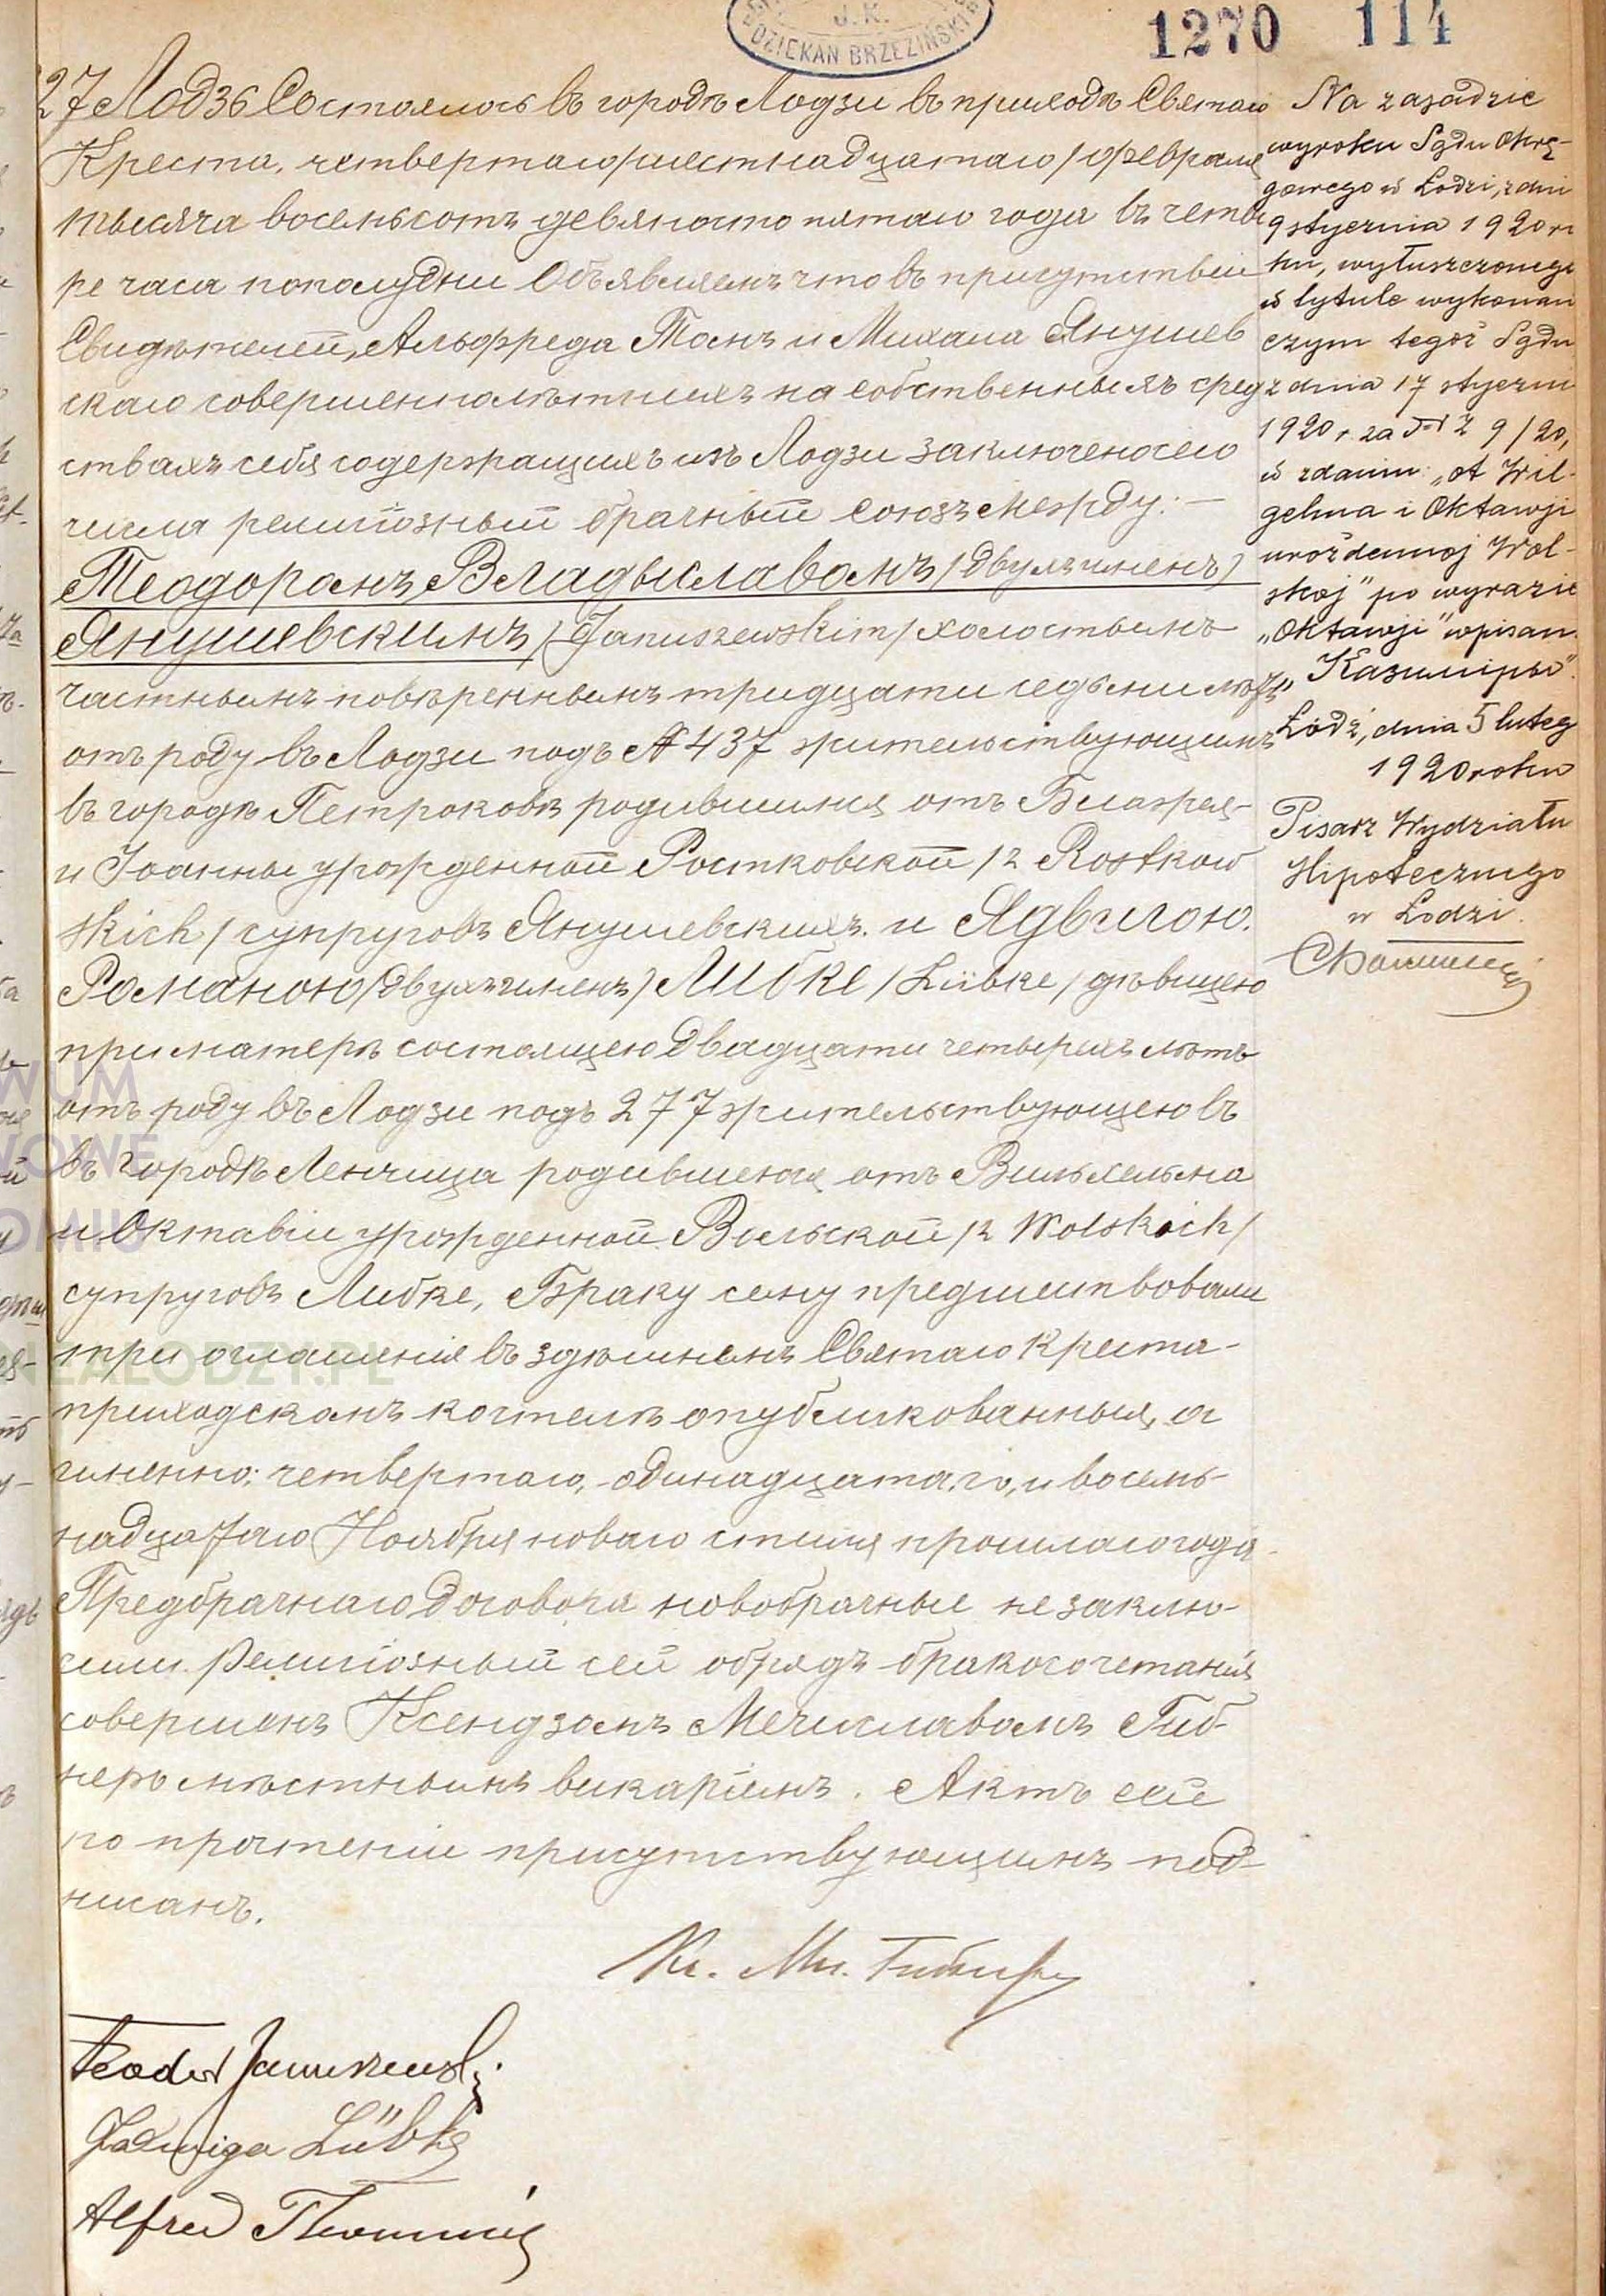 J. K.
DZIEKAN BRZEZIŃSKI
1270 114
27 Лодзь Состоялось въ городѣ Лодзи въ приходѣ Святаго
Креста, четвертаго/шестнадцатаго/февраля
тысяча восемьсотъ девяносто пятаго года въ четы
ре часа пополудни Объявляемъ что въ присутствіи
Свидѣтелей, Альфреда Томъ и Михаила Янушев
скаго совершеннолѣтнихъ на собственныхъ сред
ствахъ себя содержащихъ изъ Лодзи заключено сего
числа религіозный брачный союзъ между: —
Теодоромъ Владыславомъ /двухъ именъ/
Янушевскимъ /Januszewskim/ холостымъ
частнымъ повѣреннымъ тридцати седьми лѣтъ
отъ роду въ Лодзи подъ № 437 жительствующимъ
въ городѣ Петроковѣ родившимся отъ Блажея
и Іоанны урожденной Ростковской /z Rostkow
skich/ супруговъ Янушевскихъ. и Ядвигою.
Романою /двухъ именъ/ Либке /Lübke/ дѣвицею
при матерѣ состоящею двадцати четырехъ лѣтъ
отъ роду въ Лодзи подъ 277 жительствующею въ
въ городѣ Ленчица родившеюся отъ Вильхельма
и Октавіи урожденной Вольской /z Wolskich/
супруговъ Либке, Браку сему предшествовали
три оглашенія въ здѣшнемъ Святаго Креста-
приходскомъ костелѣ опубликованныя, а
именно: четвертаго, одинадцатаго, и восемь-
надцатаго Ноября новаго стиля прошлаго года
Предбрачнаго договора новобрачные не заклю-
чили. Религіозный сей обрядъ бракосочетанія
совершенъ Ксендзомъ Мечиславомъ Гиб-
неръ мѣстнымъ викаріемъ. Актъ сей
по прочтеніи присутствующимъ под-
писанъ.
Teodor Januszewski
Jadwiga Lübke
Alfred
Na zasadzie
wyroku Sądu Okrę-
gowego w Łodzi, z dni
9 stycznia 1920 ro
ku, wyłuszczonego
w tytule wykonaw
czym tegoż Sądu
z dnia 17 styczni
1920 r. za № Z 9/20,
w zdaniu: „ot Wil-
gelma i Oktawji
urożdennoj Wol-
skoj" po wyrazie
„Oktawji" wpisano
„Казиміры".
Łódź, dnia 5 lutego
1920 roku
Pisarz Wydziału
Hipotecznego
w Łodzi.